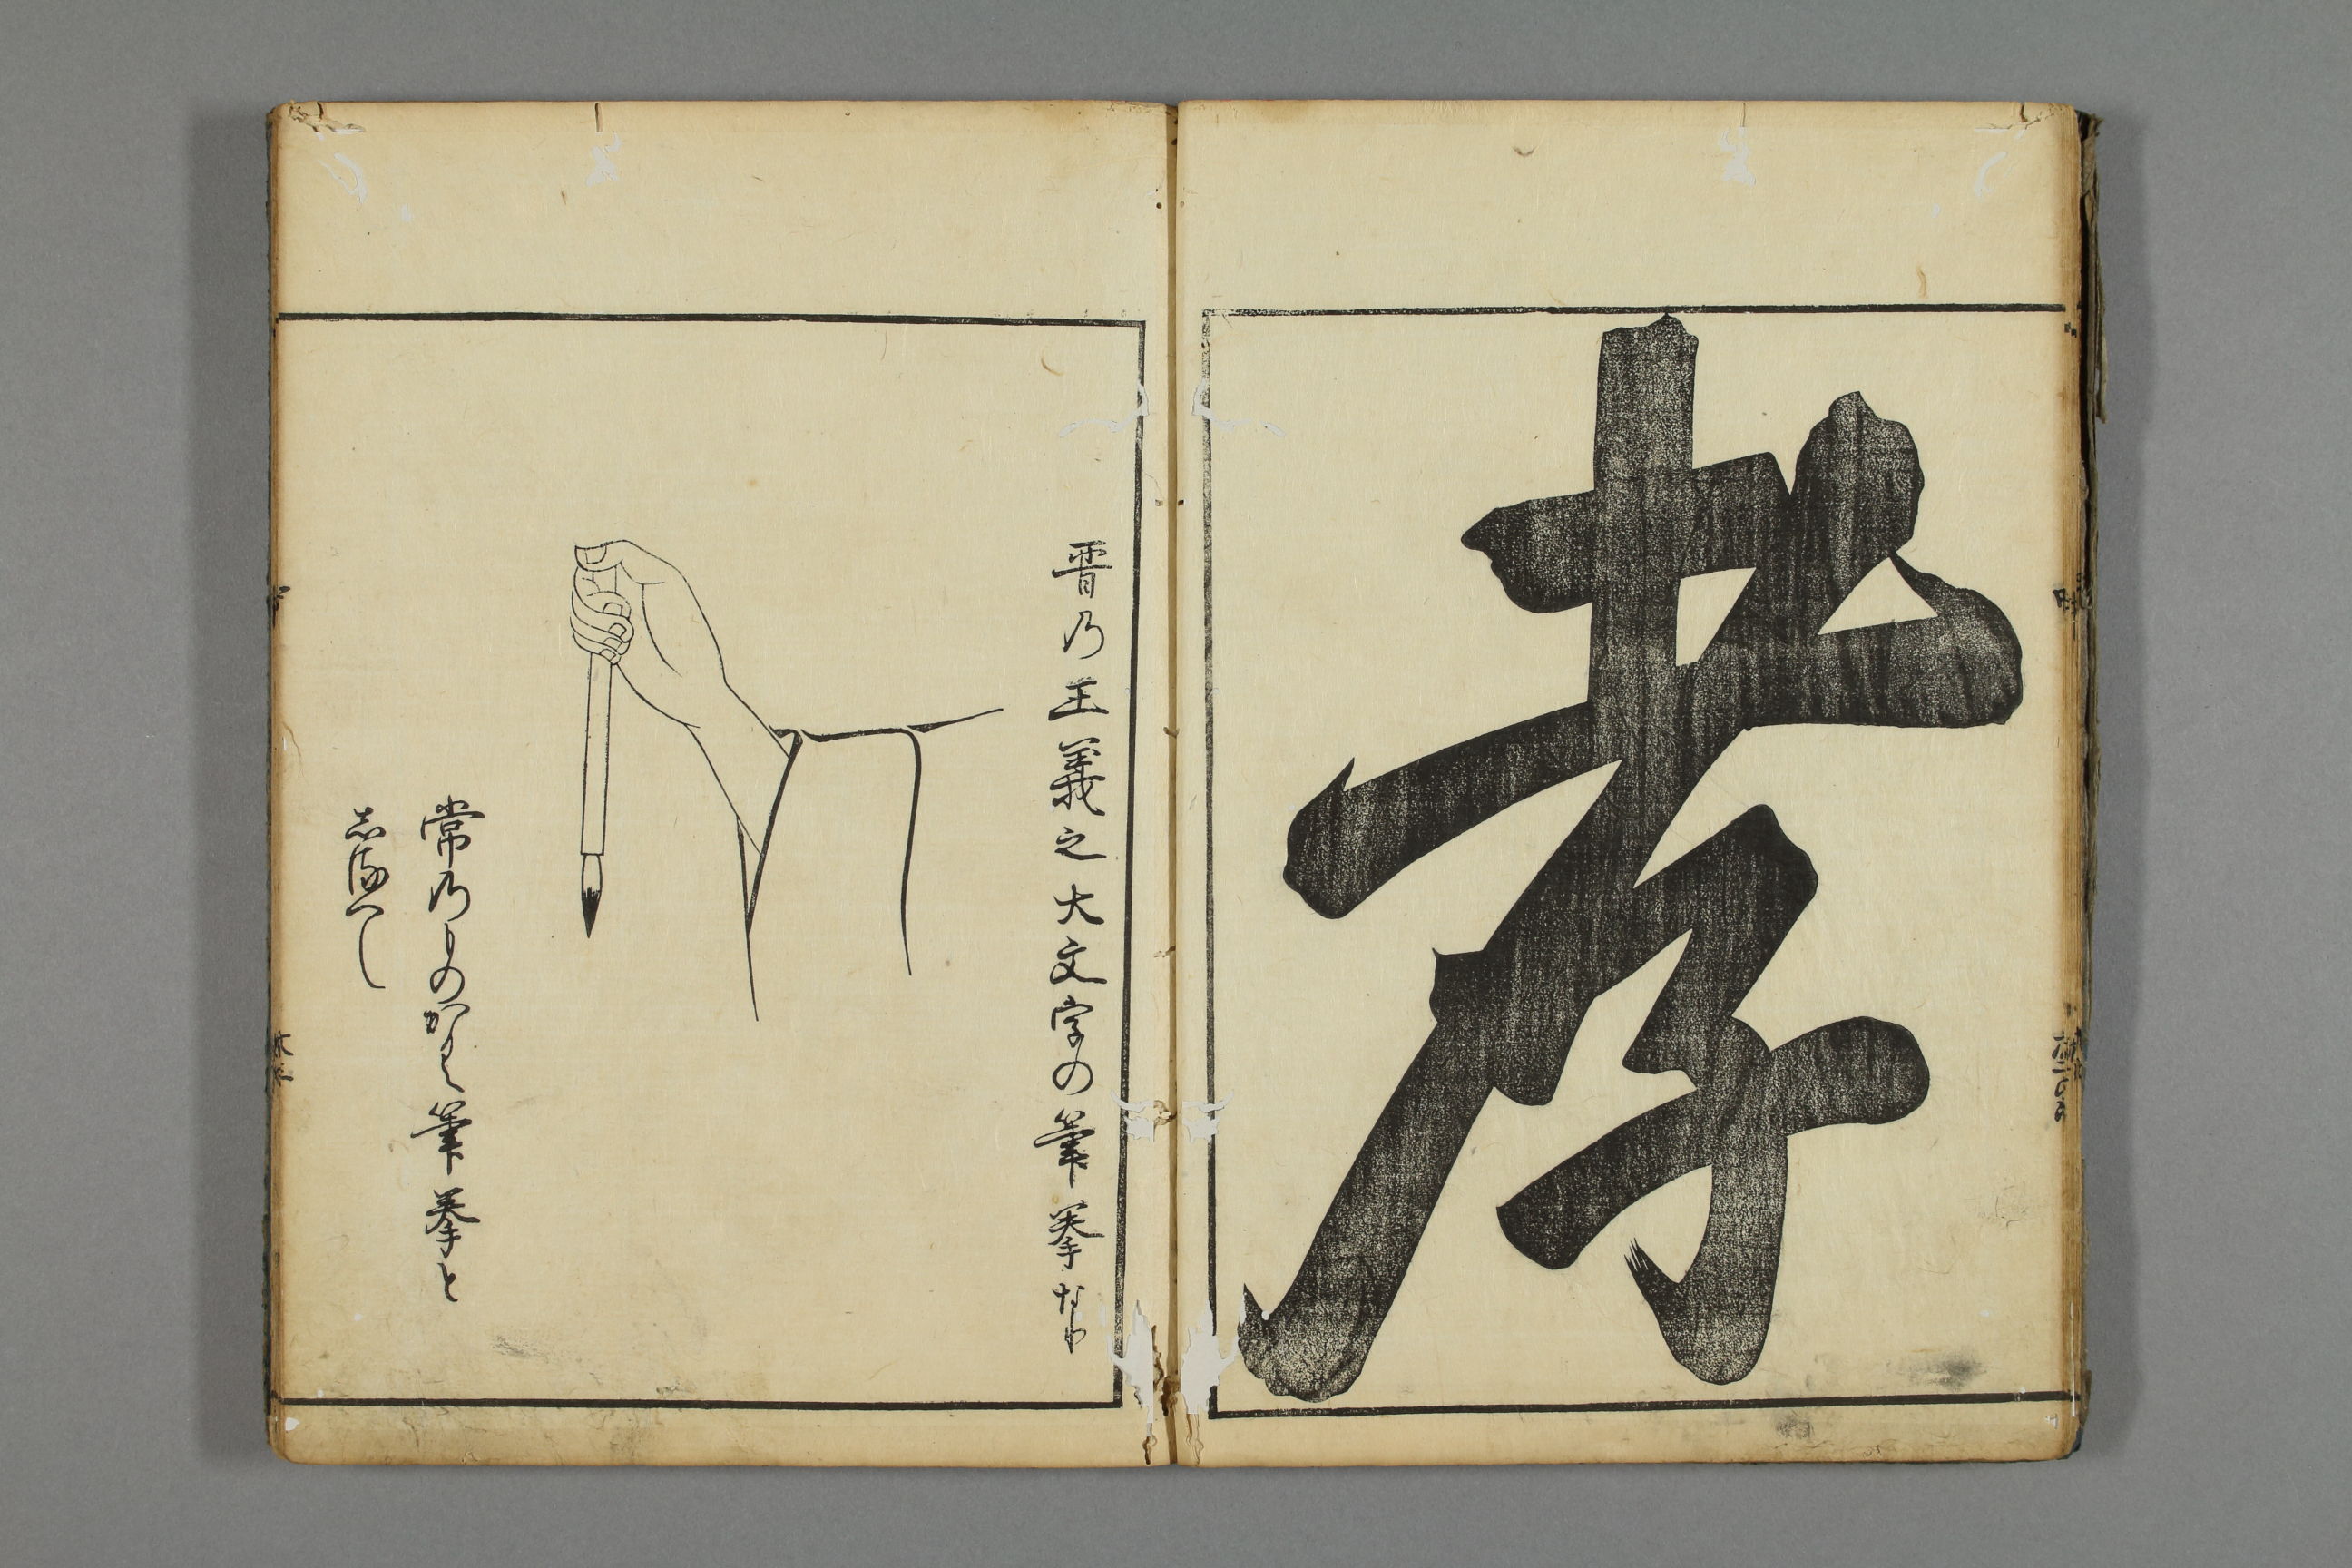 孝
晋乃王義之大文字の筆拳なり
常乃ものかく筆拳と
志るへし